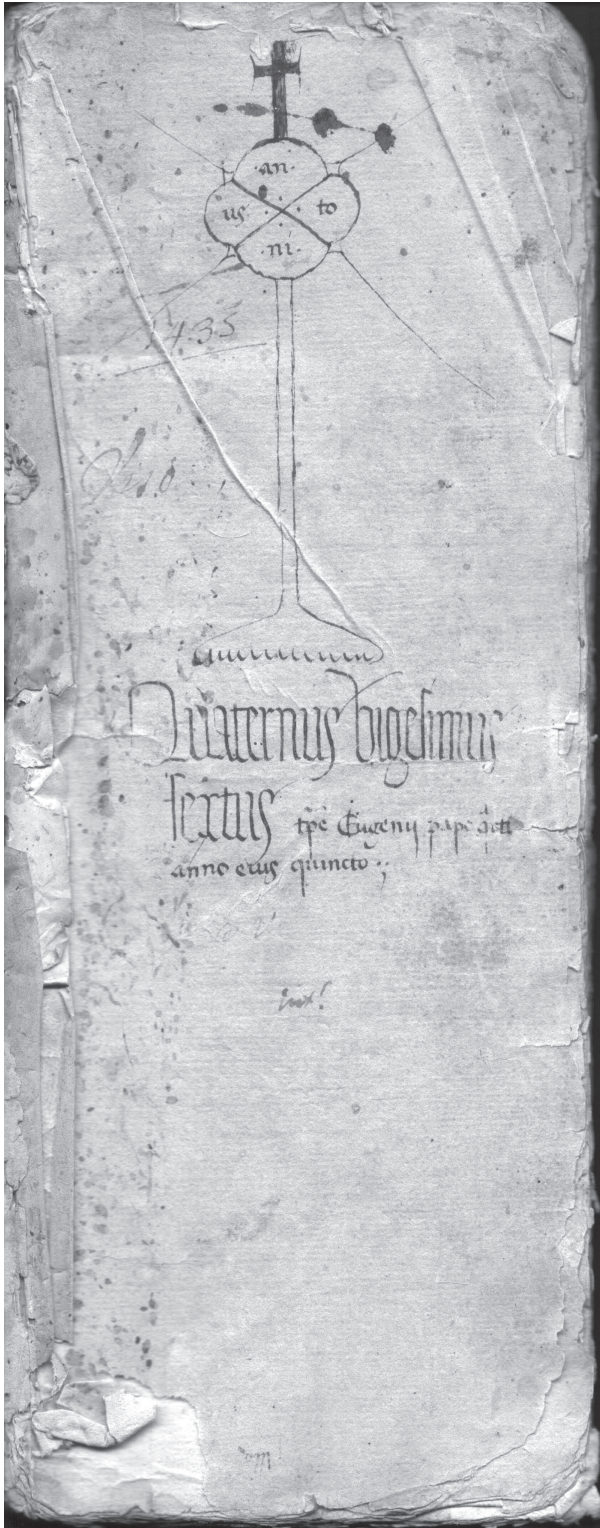 ·an·
us to
·ni·
1435
Quaternus vigesimus
sextus tpe Eugenij pape qrti
anno eius quincto